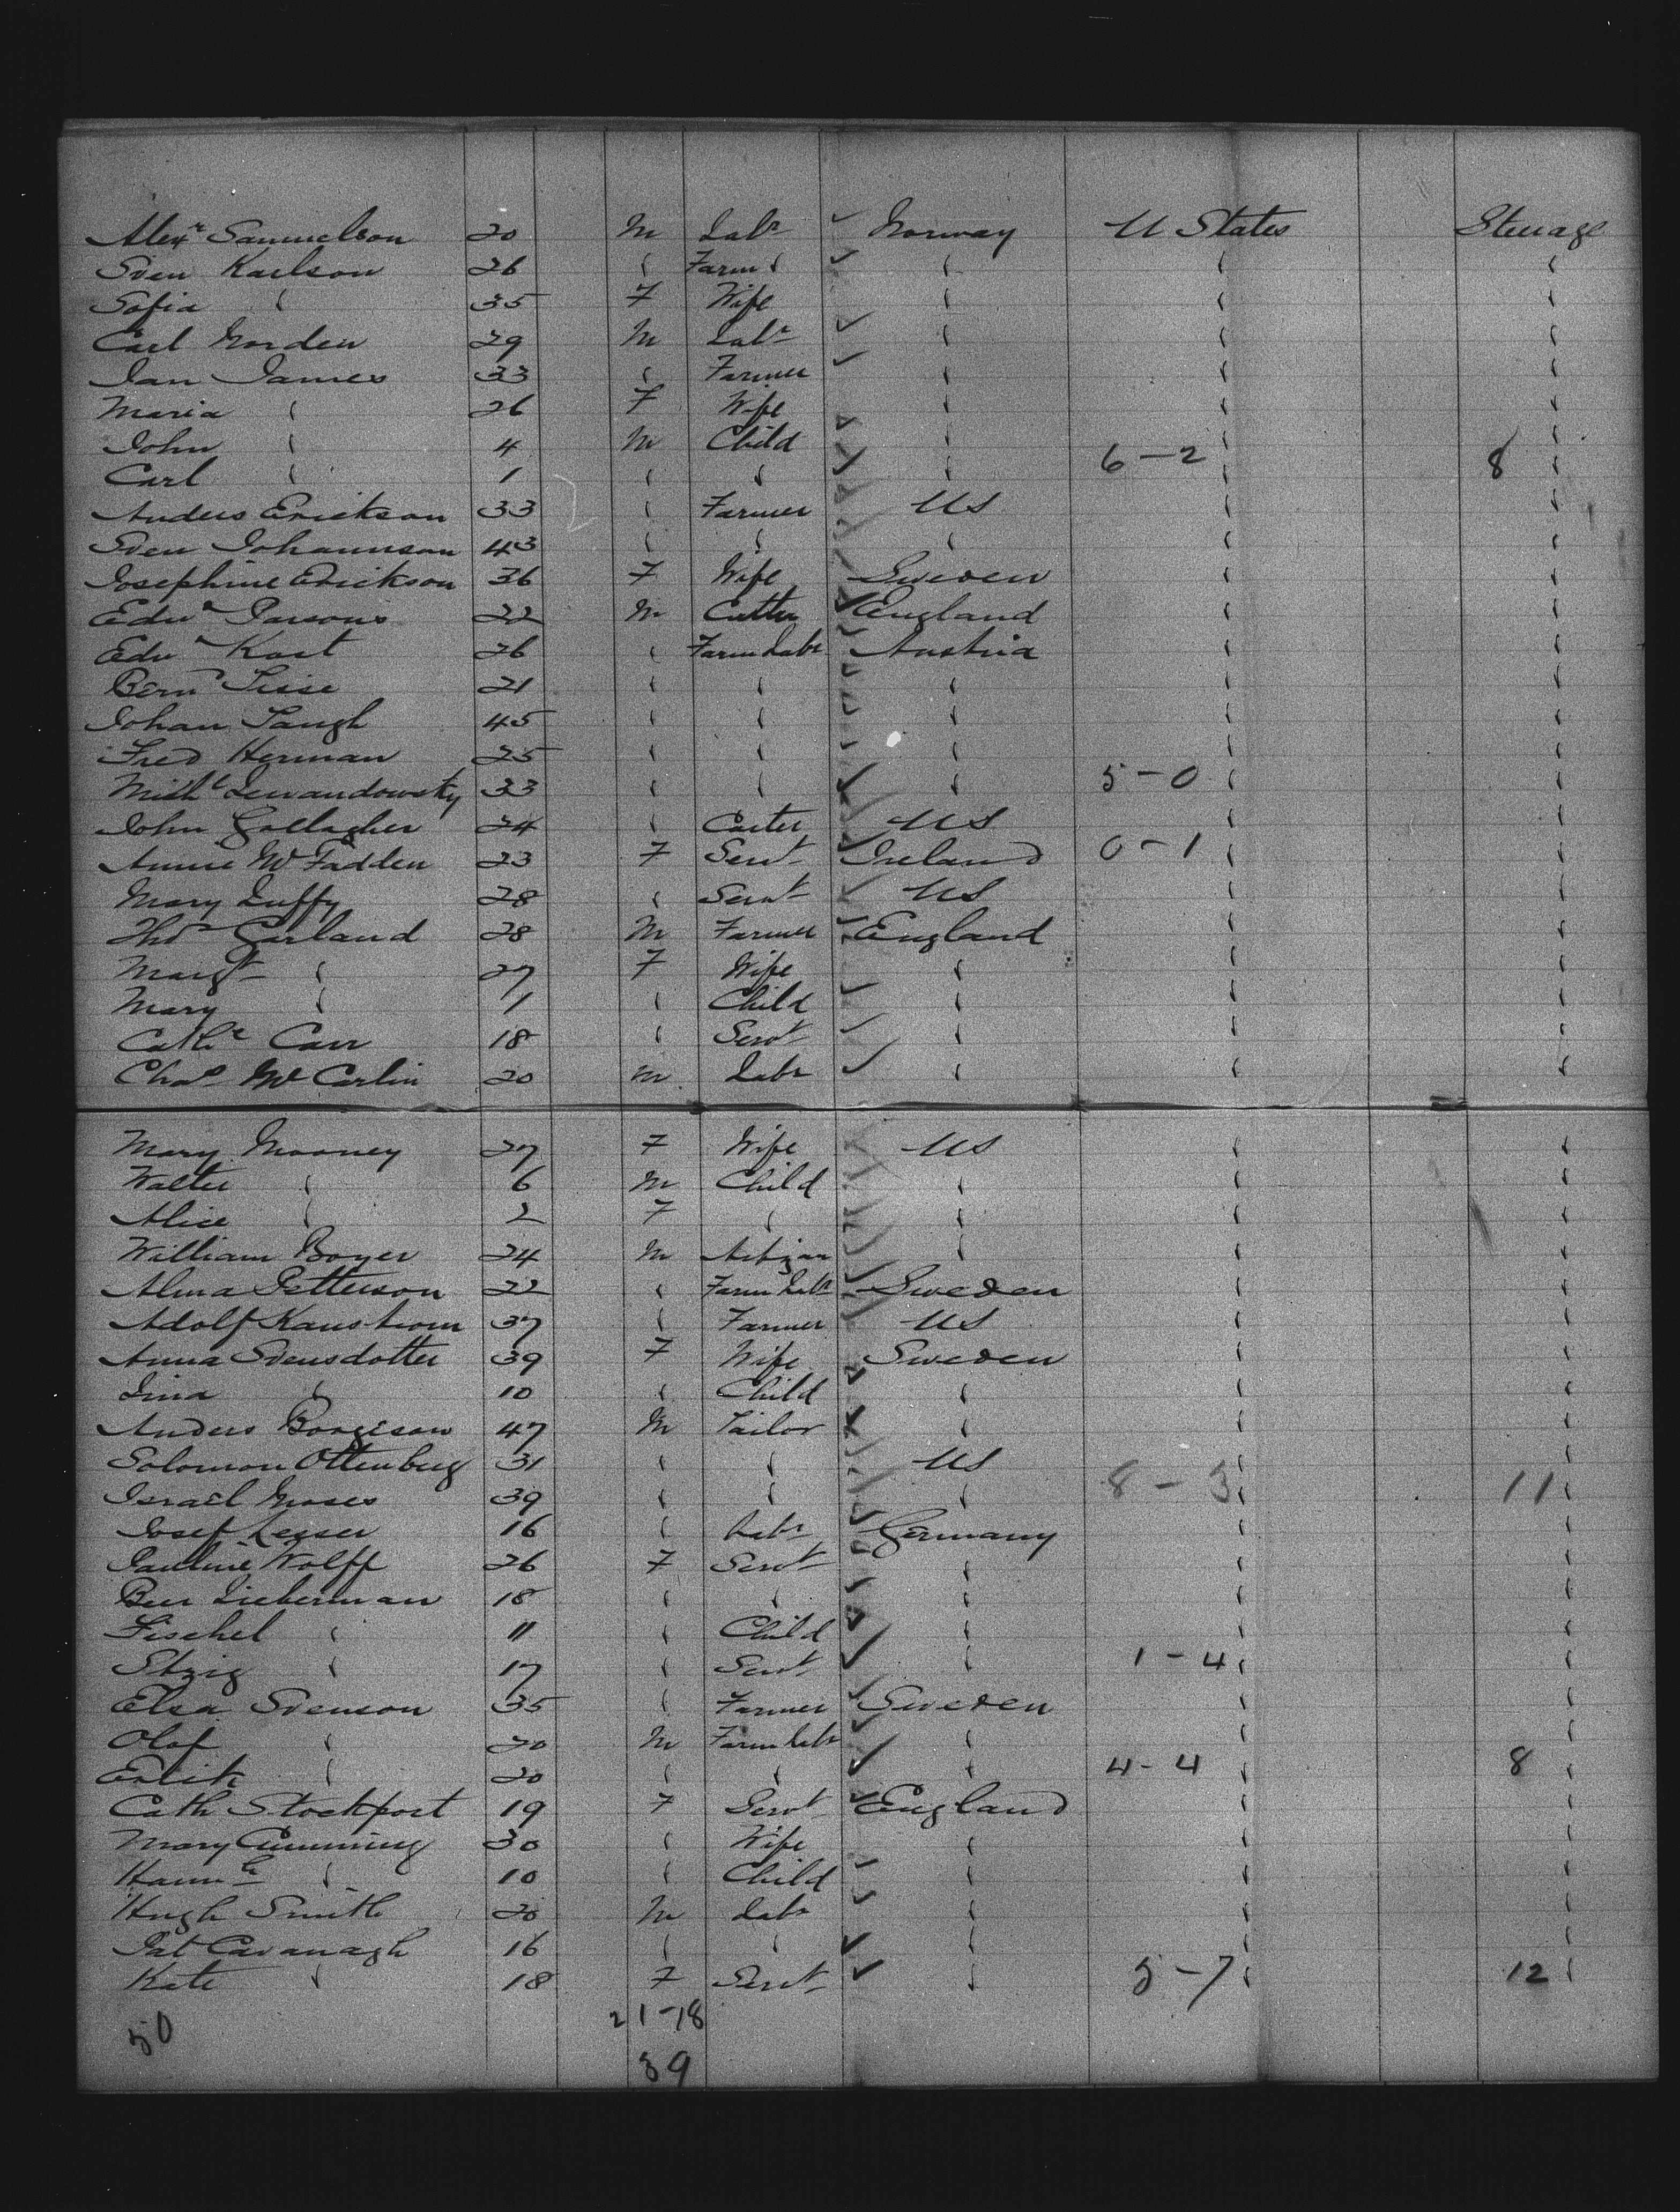 Alexr Samuelson 20 M Labr Norway U States Steerage
Sven Karlson 26 " Farm " " " "
Sofia " 35 F Wife " " "
Carl Norden 29 M Labr " " "
Jan James 33 " Farmer " " "
Maria " 26 F Wife " " "
John " 4 M Child " " "
Carl " 1 " " " 6-2 " 8 "
Anders Erickson 33 " Farmer US " "
Sven Johannson 43 " " " " "
Josephine Erickson 36 F Wife Sweden " "
Edwd Parsons 22 M Cutter England " "
Edwd Kost 26 " Farm Labr Austria " "
Bernd 21 " " " " "
Johan 45 " " " " "
Fred Herman 25 " " " " "
Michl Lewandowsky 33 " " " 5-0 " "
John Gallagher 24 " Carter US " "
Annie McFadden 23 F Servt Ireland 0-1 " "
Mary Duffy 28 " Servt US " "
Thos Garland 28 M Farmer England " "
Margt " 27 F Wife " " "
Mary " 1 " Child " " "
Cathe Carr 18 " Servt " " "
Chas McCarlin 20 M Labr " " "
Mary Mooney 27 F Wife US " "
Walter " 6 M Child " " "
Alice " 2 F " " " "
William Boyer 24 M Artizan " " "
Alma Petterson 22 " Farm Labr Sweden " "
Adolf Kanstrom 37 " Farmer US " "
Anna Svensdotter 39 F Wife Sweden " "
Lina " 10 " Child " " "
Anders Borgeson 47 M Tailor " " "
Solomon Ottenberg 31 " " US " "
Israel Moses 39 " " " 8-3 " 11 "
Josef Leyser 16 " Labr Germany " "
Pauline Wolff 26 F Servt " " "
Ber Lieberman 18 " " " " "
Fischel " 11 " Child " " "
" 17 " Servt " 1-4 " "
Elsa Svenson 35 " Farmer Sweden " "
Olof " 20 M Farm Labr " " "
Erik " 20 " " " 4-4 " 8 "
Cath Stockport 19 F Servt England " "
Mary Cumming 30 " Wife " " "
Hannh " 10 " Child " " "
Hugh Smith 20 M Labr " " "
Pat Cavanagh 16 " " " " "
Kate " 18 F Servt " 5-7 " 12 "
50 21-18
39